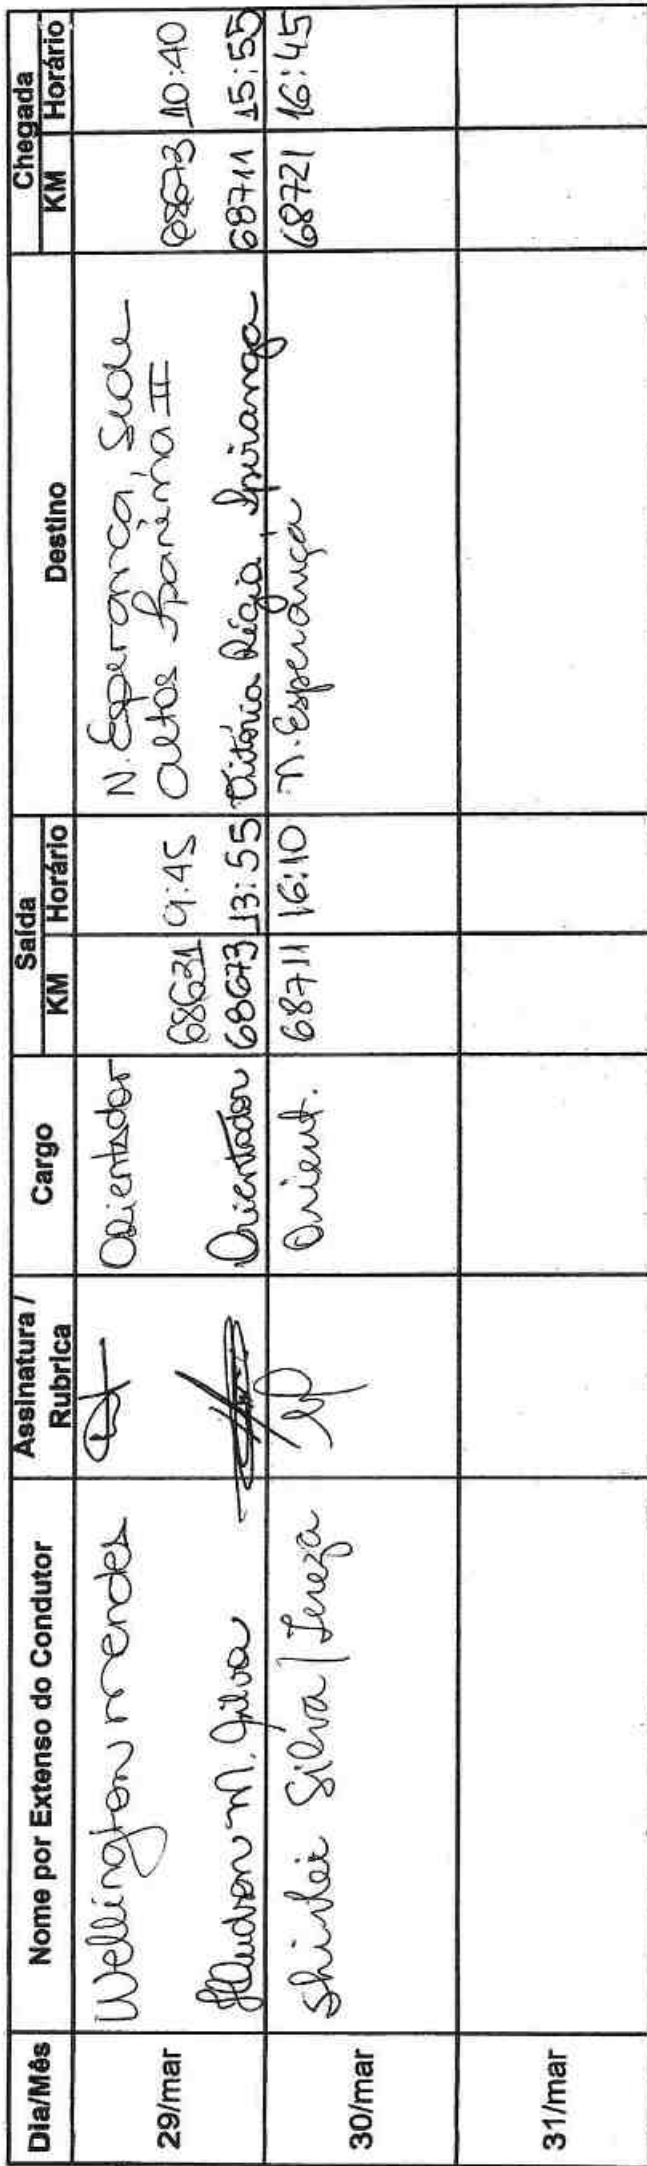 Dia/Mês Nome por Extenso do Condutor Assinatura / Rubrica Cargo Saída Destino Chegada
KM Horário KM Horário
29/mar Wellington mendes Orientador 68631 9:45 N. Esperança, Sede 68673 10:40
Altos Ipanema II
Hudson M. Silva Orientador 68673 13:55 Vitória Régia, Ipiranga 68711 15:55
30/mar Shirlei Silva / Tereza Orient. 68711 16:10 N. Esperança 68721 16:45
31/mar